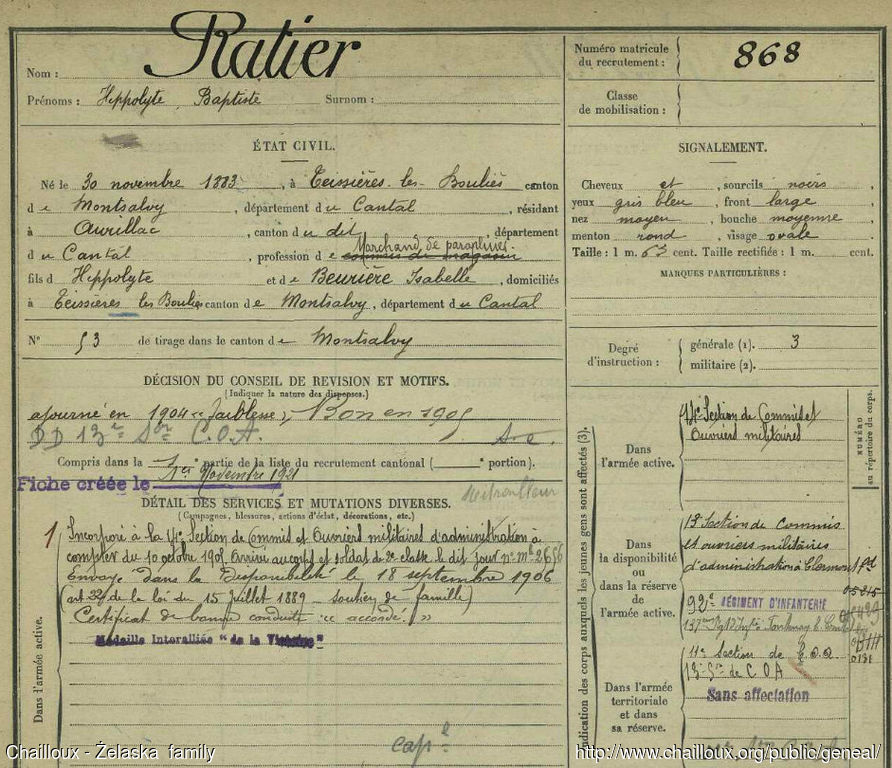 Ratier
Nom :
Prénoms : Hippolyte Baptiste Surnom :
Numéro matricule
du recrutement : 868
Classe
de mobilisation :
ÉTAT CIVIL.
Né le 30 novembre 1883, à Teissières-les-Bouliès canton
de Montsalvy, département du Cantal, résidant
à Aurillac, canton du dit, département
du Cantal, profession de Marchand de parapluies
commis de magasin
fils d Hippolyte et de Beurière Isabelle, domiciliés
à Teissières les Bouliès canton de Montsalvy, département du Cantal
N° 53 de tirage dans le canton de Montsalvy
SIGNALEMENT.
Cheveux et, sourcils noirs
yeux gris bleu, front large
nez moyen, bouche moyenne
menton rond, visage ovale
Taille : 1 m. 63 cent. Taille rectifiée : 1 m. cent.
MARQUES PARTICULIÈRES :
Degré
d'instruction :
générale (1). 3
militaire (2).
DÉCISION DU CONSEIL DE REVISION ET MOTIFS.
(Indiquer la nature des dispenses.)
ajourné en 1904 « faiblesse », Bon en 1905
DD 13e Son C.O.A. S.a.
Compris dans la 1re partie de la liste du recrutement cantonal ( portion).
Fiche créée le 1er Novembre 1921
DÉTAIL DES SERVICES ET MUTATIONS DIVERSES.
(Campagnes, blessures, actions d'éclat, décorations, etc.)
1 Incorporé à la 4e Section de Commis et Ouvriers militaires d'administration à
compter du 10 octobre 1905 Arrivé au corps et soldat de 2e classe le dit jour n° mle 2656
Envoyé dans la Disponibilité le 18 septembre 1906
(art 22 de la loi du 15 Juillet 1889 _ soutien de famille)
Certificat de bonne conduite « accordé. »
Médaille Interalliée "de la Victoire"
Dans l'armée active.
capl
Indication des corps auxquels les jeunes gens sont affectés (3).
NUMÉRO
au répertoire du corps.
Dans
l'armée active.
4e Section de Commis et
Ouvriers militaires
Dans
la disponibilité
ou
dans la réserve
de
l'armée active.
13e Section de Commis
et ouvriers militaires
d'administration à Clermont fd
92e RÉGIMENT D'INFANTERIE
137me Rgt d'Infie Fontenay le Comte
Dans l'armée
territoriale
et dans
sa réserve.
11e Section de C.O.A
13e Son de C O A
Sans affectation
0131
Chailloux - Želaska family
http://www.chailloux.org/public/geneal/